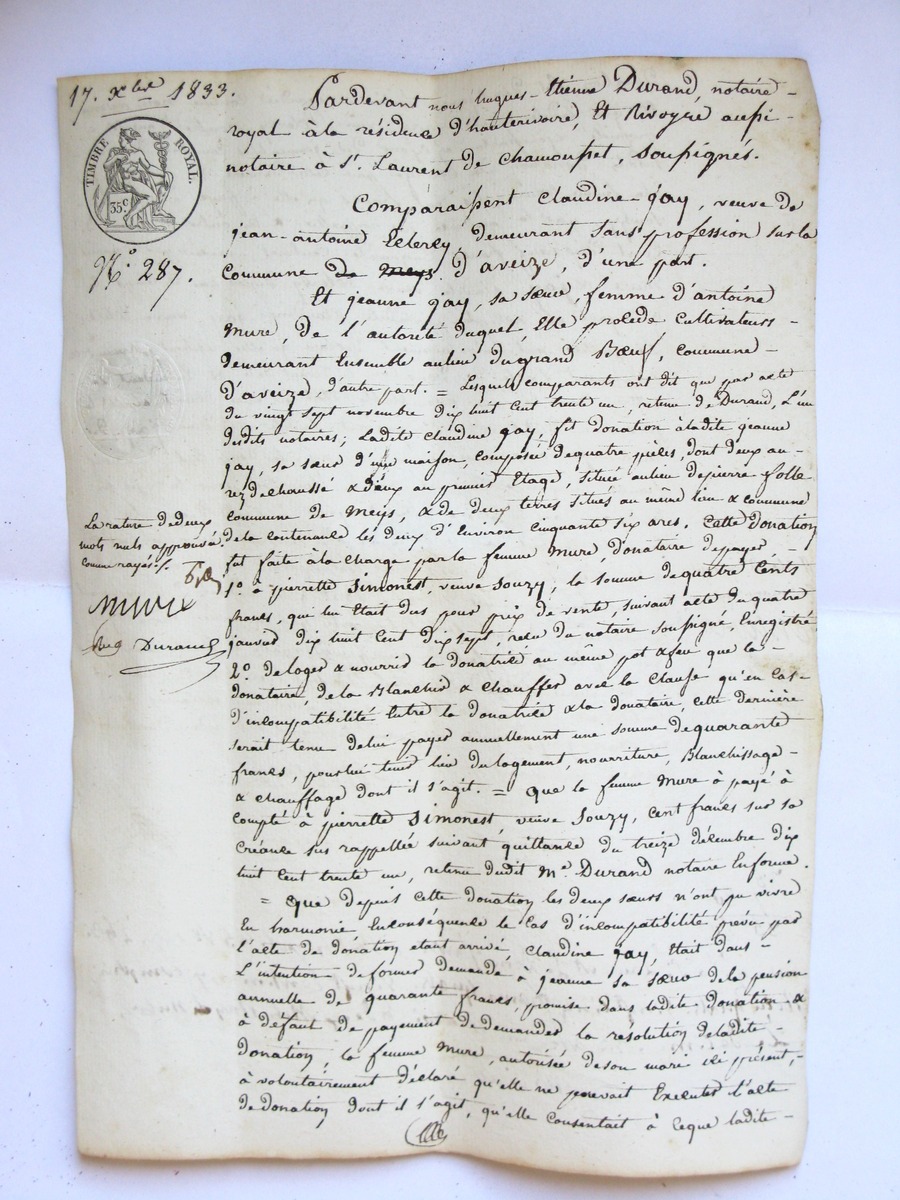 17. Xbre 1833.
TIMBRE ROYAL.
35c
No. 287.
Pardevant nous hugues-Etienne Durand, notaire
royal à la résidence d'hauterivoire, Et Rivoyre aussi
notaire à St. Laurent de Chamousset, soussignés.
Comparaissent Claudine gay, veuve de
jean-antoine Leclerc, demeurant sans profession sur la
Commune de Meys. d'aveize, d'une part.
Et jeanne gay, sa sœur, femme d'antoine
Mure, de l'autorité duquel Elle procède Cultivateurs
demeurant Ensemble au lieu du grand Bœuf, Commune
d'aveize, d'autre part. = Lesquels comparants ont dit que par acte
du vingt sept novembre dix huit cent trente un, retenu de Durand, L'un
desdits notaires; Ladite Claudine gay, fit donation à ladite jeanne
gay, sa sœur d'une maison, composée de quatre pièces, dont deux au
rez de chaussé & deux au premier Etage, située au lieu de pierre folle
commune de Meys, & de deux terres situés au même lieu & commune
de la contenance les deux d'Environ Cinquante six ares. Cette donation
fut faite à la charge par la femme Mure, donataire de payer,
1o. à pierrette Simonest, veuve Souzy, la somme de quatre Cents
francs, qui lui Etait dus pour prix de vente, suivant acte du quatre
janvier dix huit Cent dix sept, reçu du notaire soussigné, Enregistré
2o. de loger & nourrir la donatrice au même pot & feu que la
donataire, de la Blanchir & chauffer avec la Clause qu'en Cas
d'incompatibilité Entre la donatrice & la donataire, cette dernière
serait tenue de lui payer annuellement une somme de quarante
francs, pour lui tenir lieu du logement, nourriture, Blanchissage
& chauffage dont il s'agit. = que la femme Mure à payé à
compte à pierrette Simonest, veuve Souzy, Cent francs sur sa
Créance sus rappellée suivant quittance du treize décembre dix
huit Cent trente un, retenu dudit Me. Durand notaire En forme.
= que depuis Cette donation les deux sœurs n'ont pu vivre
En harmonie En conséquence le Cas d'incompatibilité prévu par
l'acte de donation etant arrivé, Claudine gay, Etait dans
L'intention de former demande à jeanne sa sœur de la pension
annuelle de quarante francs, promise dans ladite donation &
à défaut de payement de demander la résolution de ladite
donation; la femme Mure, autorisée de son mari ici présent,
à volontairement déclaré qu'elle ne pouvait Executer l'acte
de donation dont il s'agit, qu'elle Consentait à ce que ladite
La rature de deux
mots nuls approuvée
comme rayés ./.
Mure
Durand